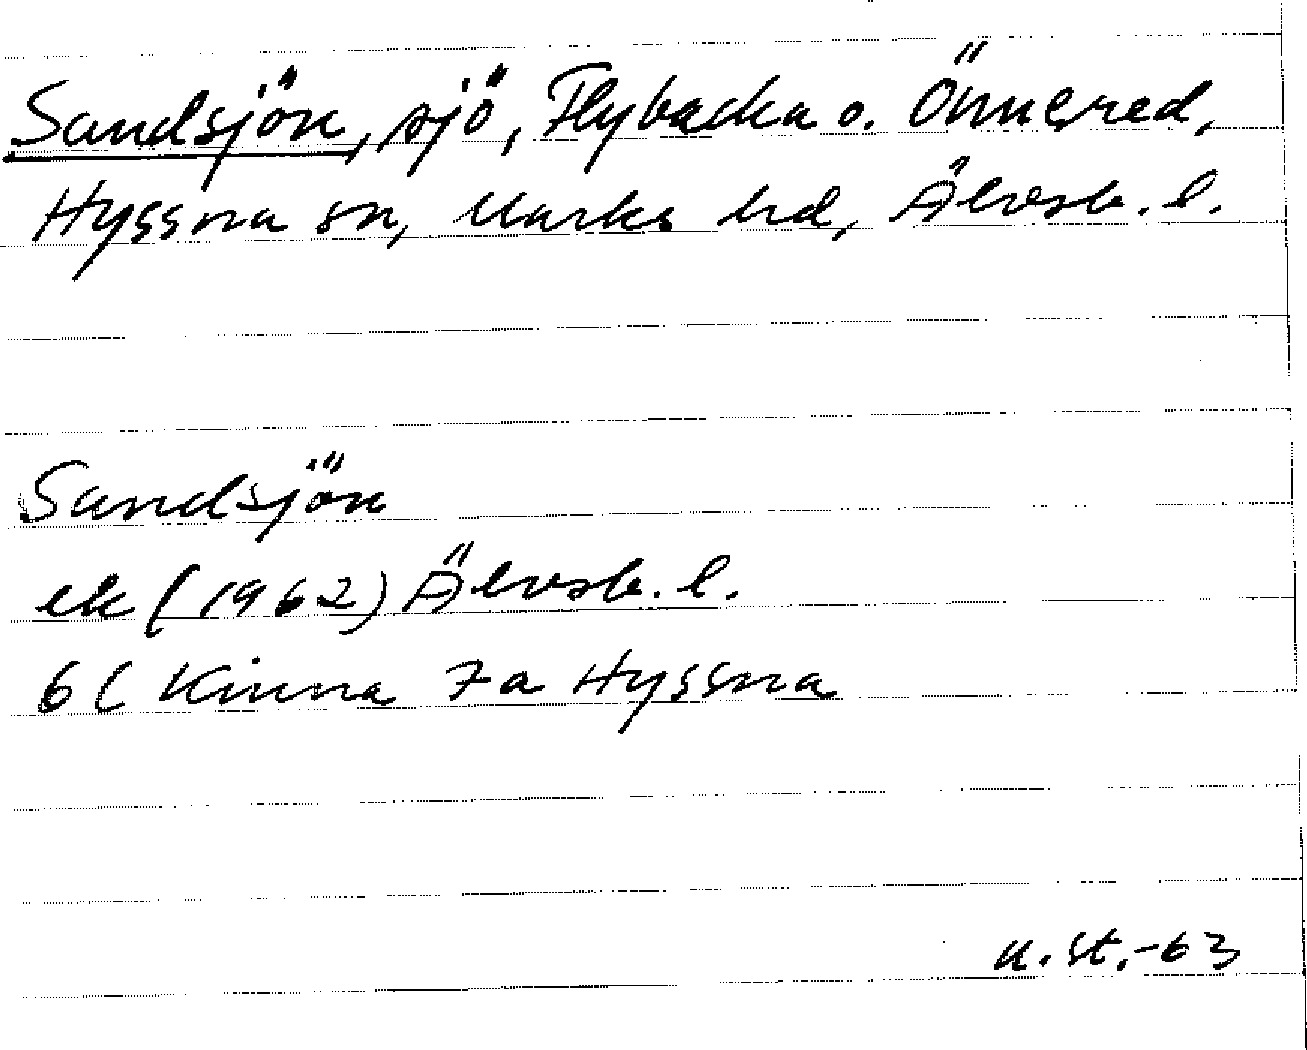 Sandsjön, sjö, Flybacka o. Önnered,
Hyssna sn, Marks hd, Älvsb. l.
Sandsjön
ek (1962) Älvsb. l.
6C Kinna 7a Hyssna
u. st. -63